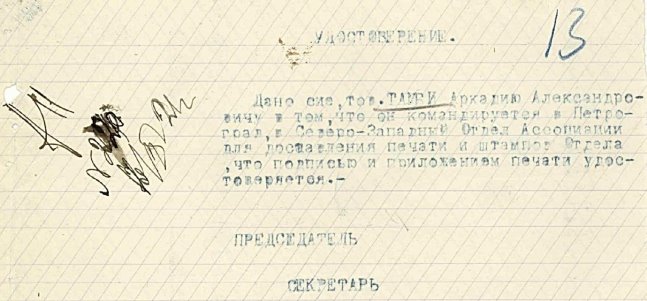 УДОСТОВЕРЕНИЕ.
13
Дано сие, тов. ТАБРИ Аркадию Александро-
вичу в том, что он командируется в Петро-
град, в Северо-Западный Отдел Ассоциации
для доставления печати и штампов Отдела
, что подписью и приложением печати удос-
товеряется.-
ПРЕДСЕДАТЕЛЬ
СЕКРЕТАРЬ